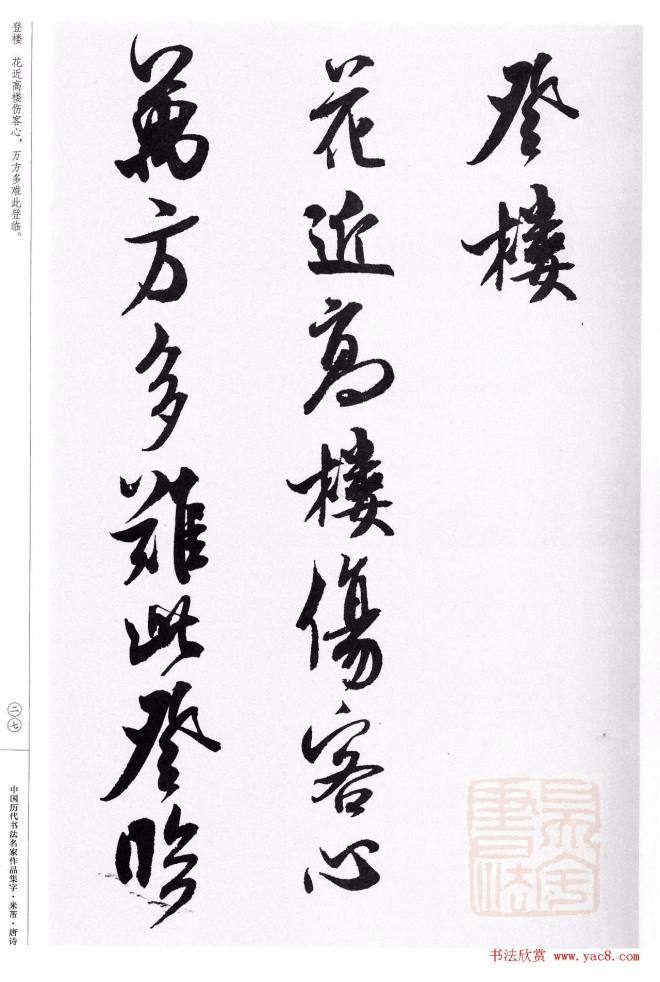 登樓
花近高樓傷客心
萬方多難此登臨
登楼　花近高楼伤客心，万方多难此登临。
二七
中国历代书法名家作品集字·米芾·唐诗
书法欣赏 www.yac8.com